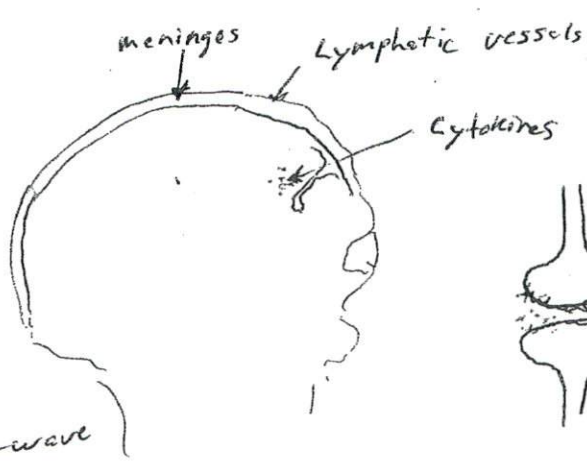 meninges
Lymphatic vessels
Cytokines
-wave